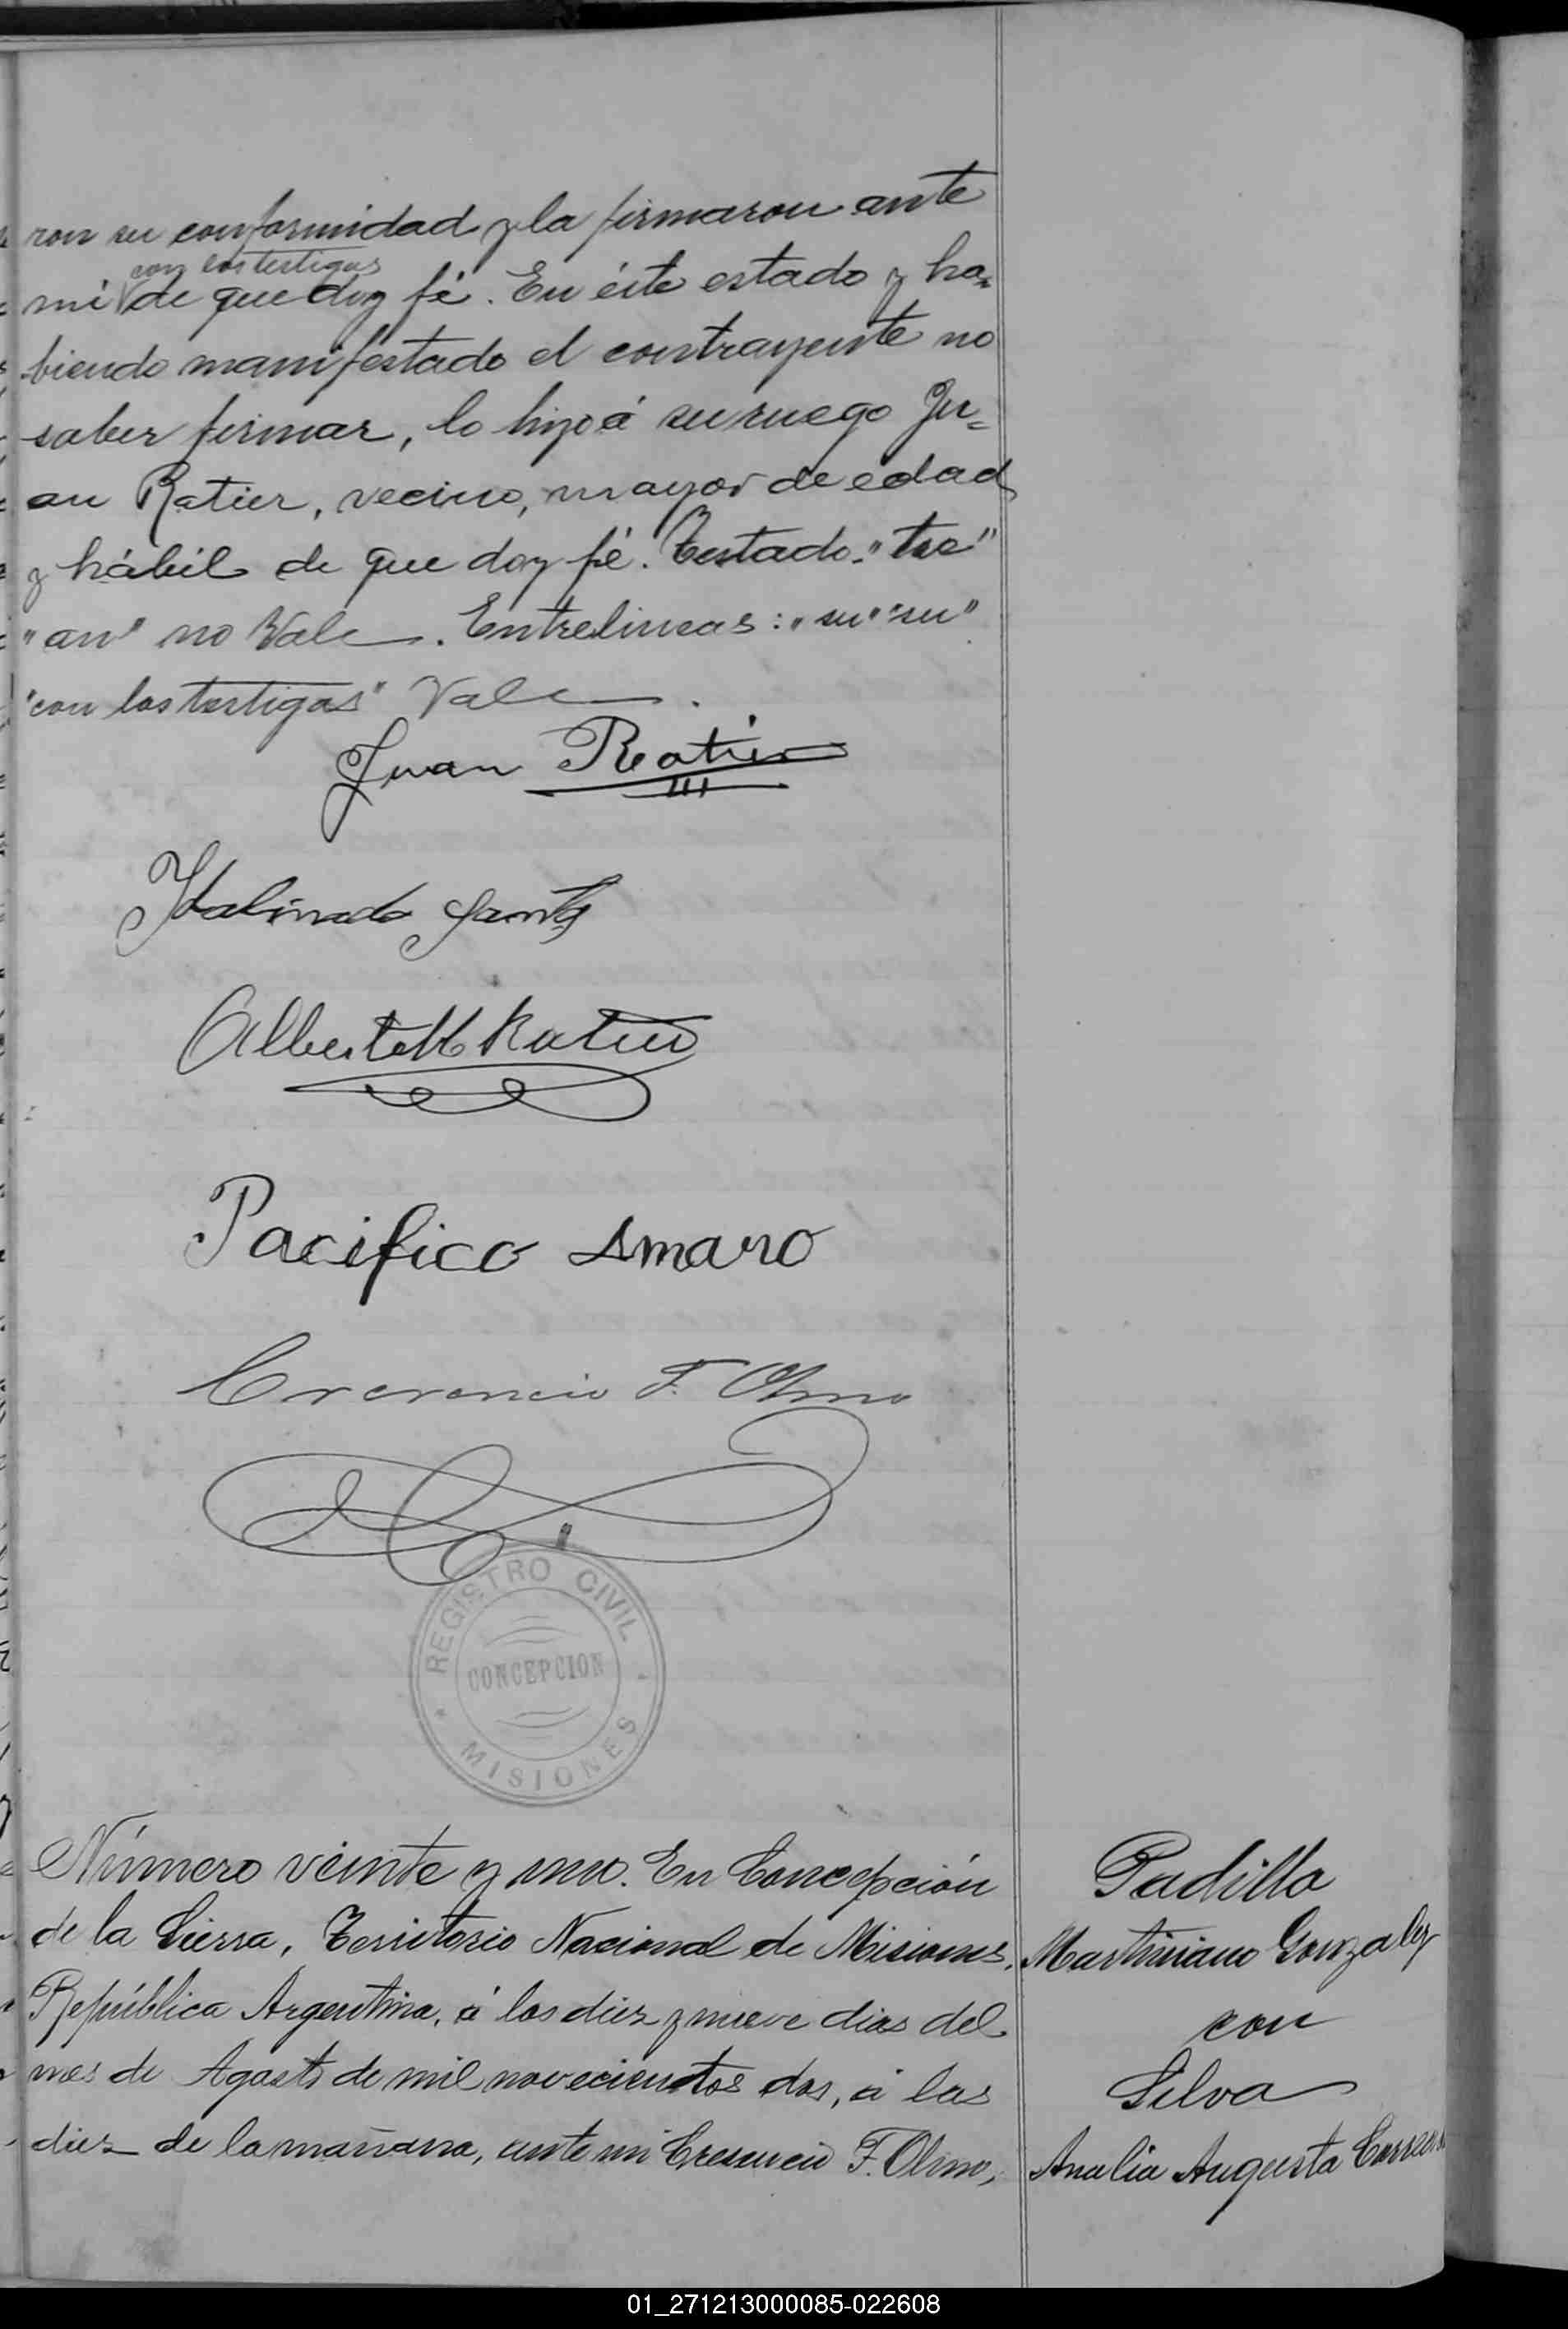 ron su conformidad y la firmaron ante
con los testigos
mi de que doy fé. En éste estado y ha=
biendo manifestado el contrayente no
saber firmar, lo hizo á su ruego Ju=
an Ratier, vecino, mayor de edad
y hábil de que doy fé. Testado "
"an" no Vale. Entrelineas: "su" "su"
"con los testigos" Vale.
Juan Ratier
Alberto M Ratier
Pacifico Amaro
Crecencio F. Olmo
REGISTRO CIVIL
CONCEPCION
MISIONES
Número veinte y uno. En Concepción
de la Sierra, Territorio Nacional de Misiones,
República Argentina, á los diez y nueve dias del
mes de Agosto de mil novecientos dos, á las
diez de la mañana, ante mi Cresencio F. Olmo,
Padilla
Martiniano Gonzalez
con
Silva
Analia Augusta
01_271213000085-022608